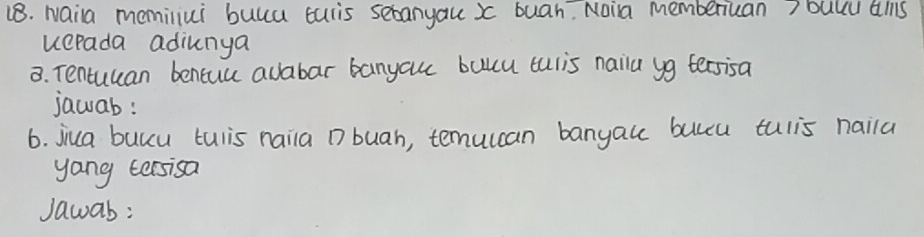 18. Naila memiliki buku tulis sebanyak x buah. Naila memberikan 7 buku tulis
kepada adiknya
a. Tentukan bentuk aljabar banyak buku tulis naila yg tersisa
jawab:
b. jika buku tulis naila 17 buah, temukan banyak buku tulis naila
yang tersisa
Jawab: